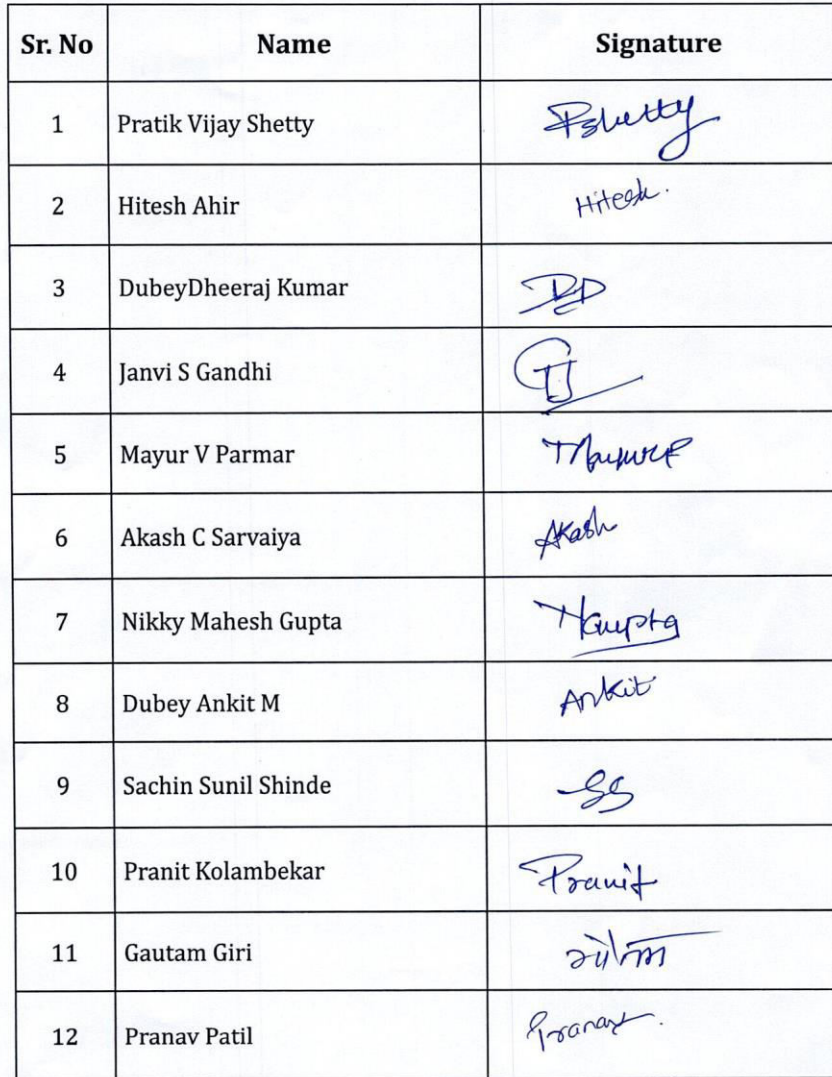 Sr. No Name Signature
1 Pratik Vijay Shetty PShetty
2 Hitesh Ahir Hitesh.
3 DubeyDheeraj Kumar
4 Janvi S Gandhi
5 Mayur V Parmar
6 Akash C Sarvaiya Akash
7 Nikky Mahesh Gupta
8 Dubey Ankit M Ankit
9 Sachin Sunil Shinde SS
10 Pranit Kolambekar Pranit
11 Gautam Giri
12 Pranav Patil Pranav.